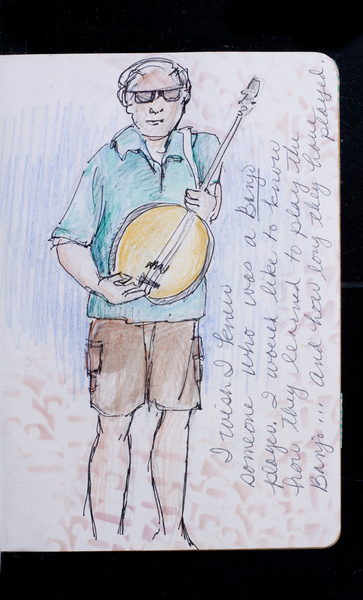 I wish I knew
someone who was a Banjo
player. I would like to know
how they learned to play the
Banjo... and how long they have played.